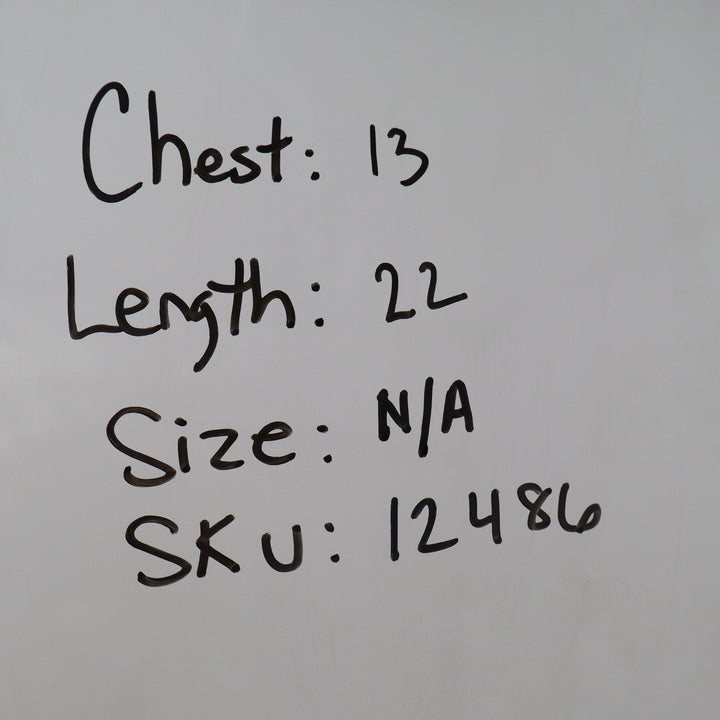 Chest: 13
Length: 22
Size: N/A
SKU: 12486